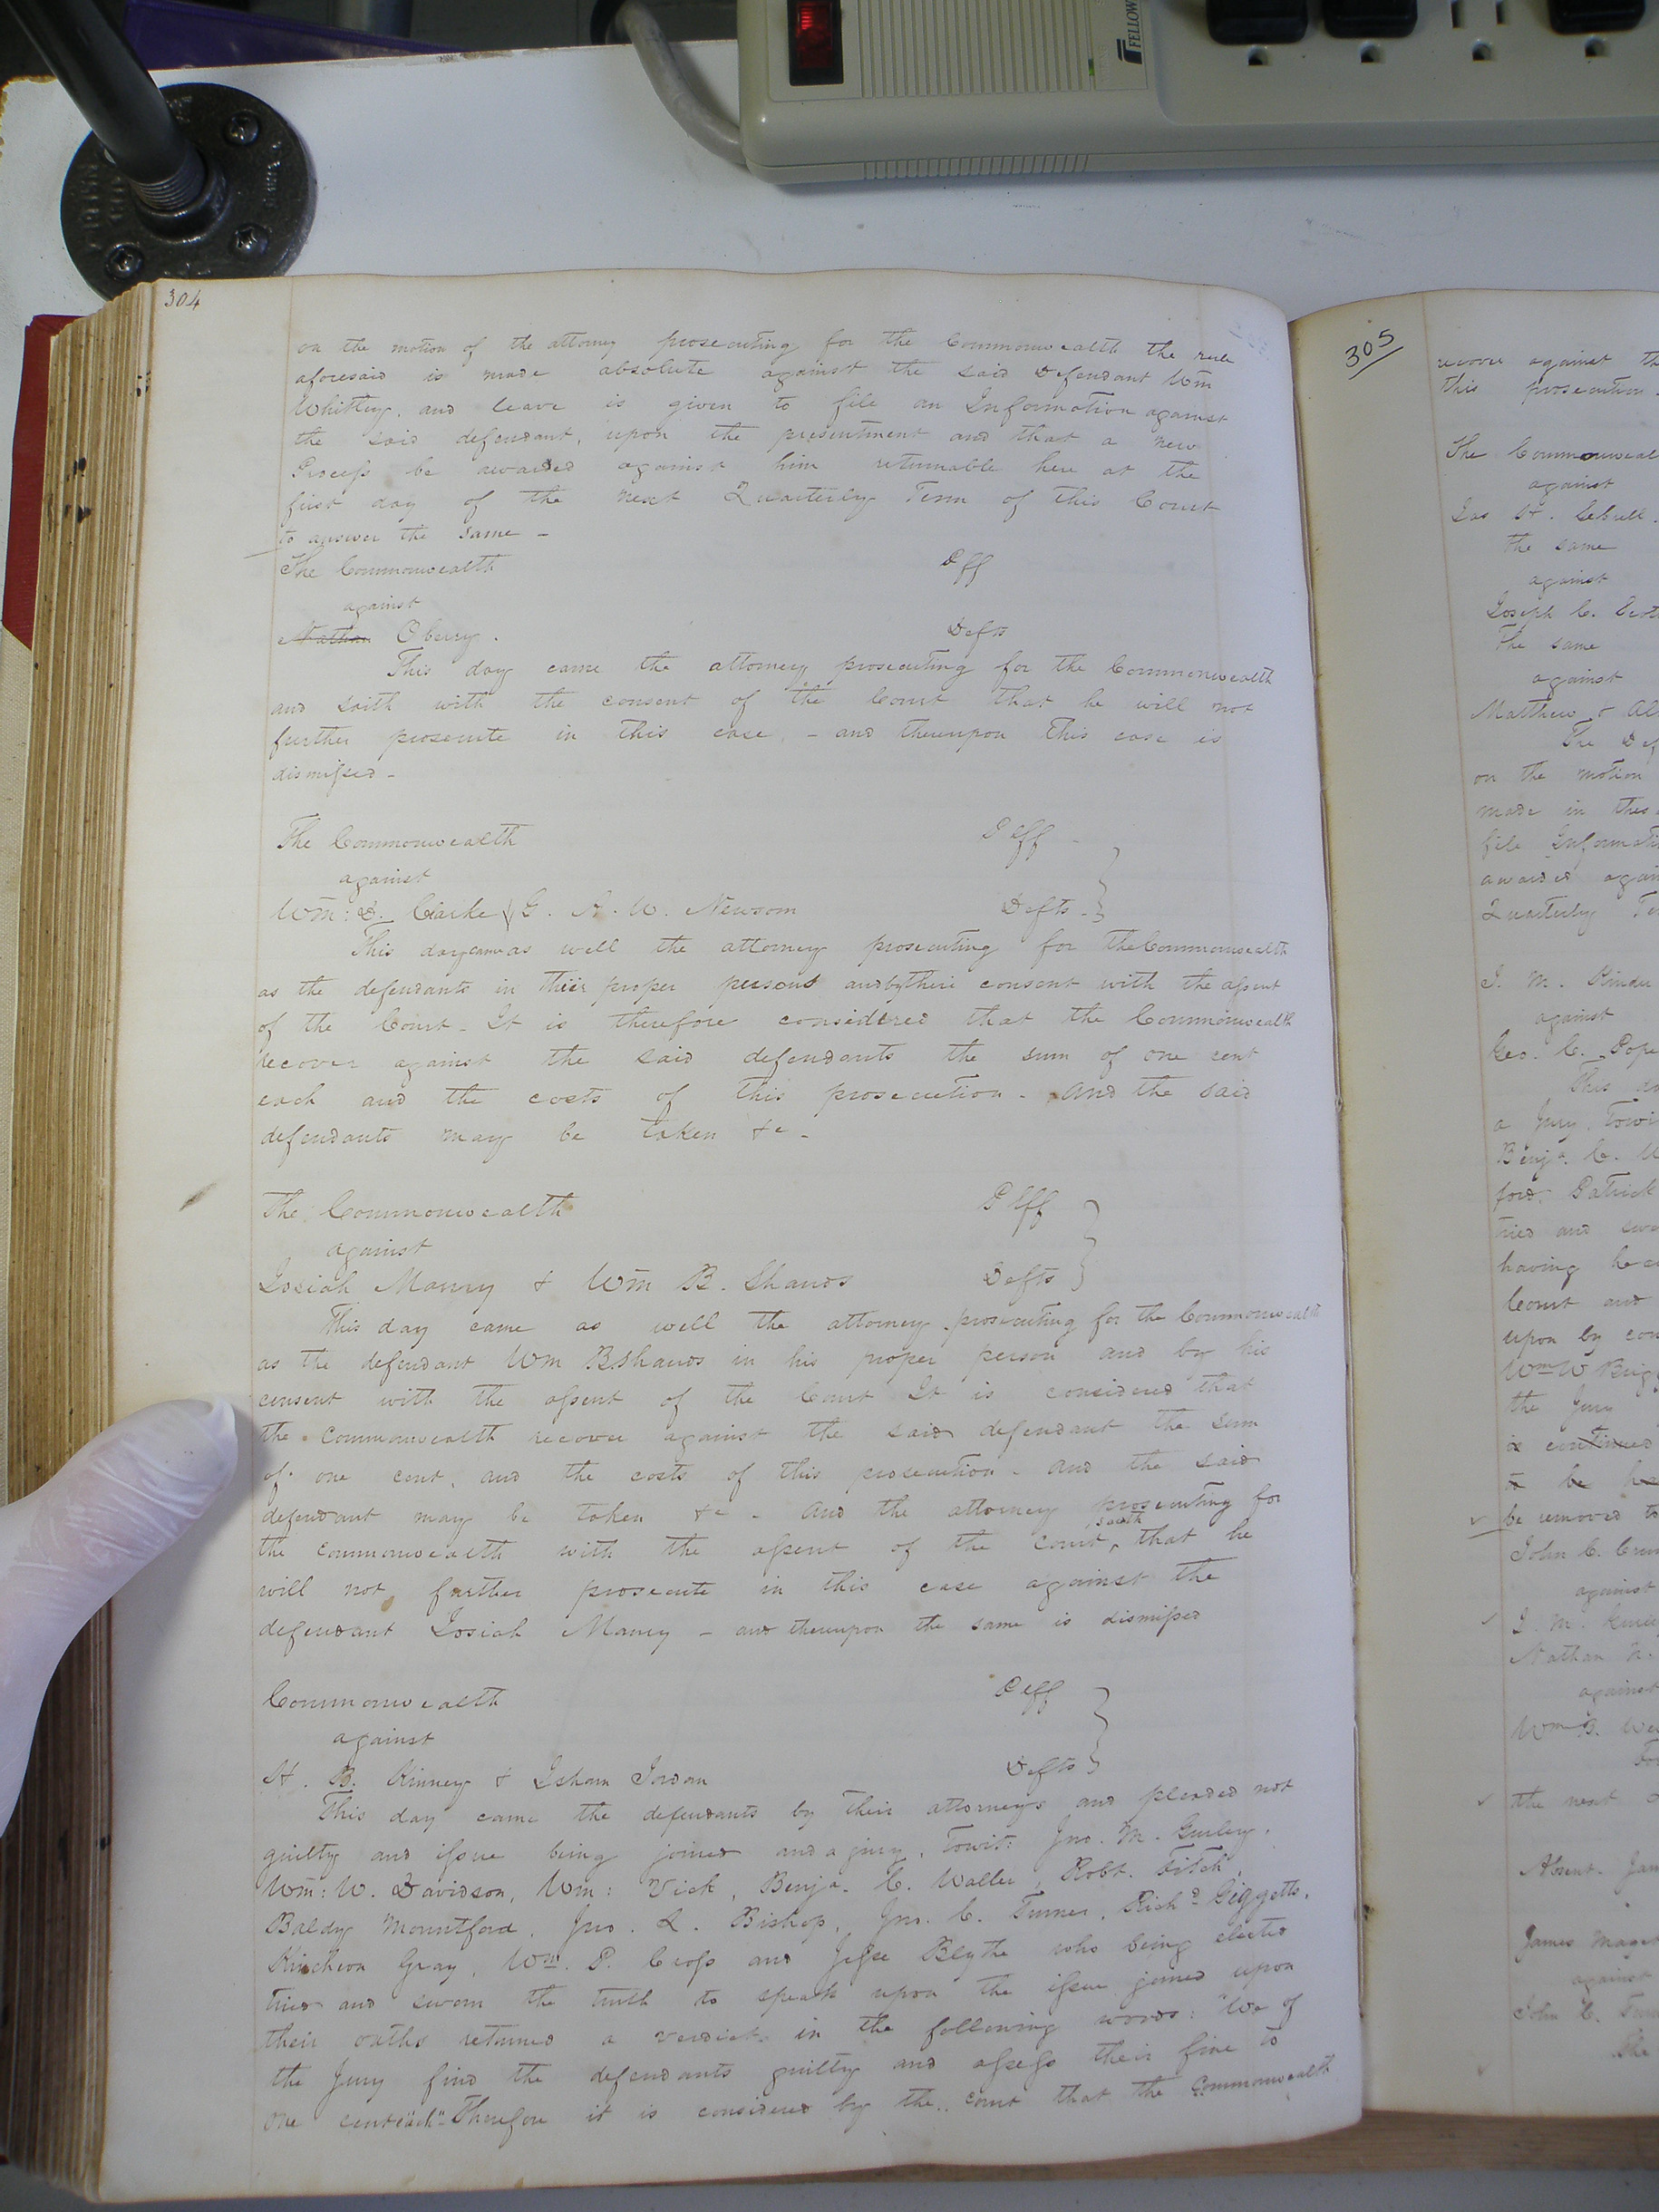 FELLOW
304
on the motion of the attorney prosecuting for the Commonwealth the rule
aforesaid is made absolute against the said Defendant Wm
Whitley, and leave is given to file an Information against
the said defendant, upon the presentment and that a new
Process be awarded against him returnable here at the
first day of the next Quarterly Term of this Court
to answer the same -
The Commonwealth Plff
against
Nathan Oberry. Defts
This day came the attorney prosecuting for the Commonwealth
and saith with the consent of the Court that he will not
further prosecute in this case, - and thereupon this case is
dismissed -
The Commonwealth Plff -
against
Wm: D. Clarke & G. A. W. Newsom Defts -
This day came as well the attorney prosecuting for the Commonwealth
as the defendants in their proper persons and by their consent with the assent
of the Court - It is therefore considered that the Commonwealth
recover against the said defendants the sum of one cent
each and the costs of this prosecution - And the said
defendants may be taken &c -
The Commonwealth Plff
against
Josiah Maury & Wm B. Shands Defts
This day came as well the attorney prosecuting for the Commonwealth
as the defendant Wm B Shands in his proper person and by his
consent with the assent of the Court It is considered that
the Commonwealth recover against the said defendant the sum
of one cent, and the costs of this prosecution - and the said
defendant may be taken &c - And the attorney prosecuting for
the commonwealth with the assent of the Court, saith that he
will not further prosecute in this case against the
defendant Josiah Maury - and thereupon the same is dismissed
Commonwealth Plff
against
H. B. Kinney & Isham Jordan Defts
This day came the defendants by their attorneys and pleaded not
guilty and issue being joined and a jury, Towit: Jno. M. Gurley,
Wm: W. Davidson, Wm: Vick, Benja. C. Waller, Robt. Fitch,
Baldy Mountford, Jno. L. Bishop, Jno. C. Turner, Richd Giggetts,
Kincheon Gray, Wm. P. Cross and Jesse Blythe who being elected
tried and sworn the truth to speak upon the issue joined upon
their oaths returned a verdict in the following words: "We of
the Jury find the defendants guilty and assess their fine to
one cent each" Therefore it is considered by the court that the Commonwealth
305
recover against
this prosecution
The
against
the same
against
Joseph C.
The same
against
Matthew
The
on the motion
made in
file
awarded
Quarterly
J. M.
against
Geo. C. Pope
This
a Jury, Towit
Benja. C.
ford, Patrick
tried and
having
Court and
upon by
Wm W
the Jury
is continued
to be
be removed
John C.
against
J. M.
Nathan
against
Wm B.
the next
Absent
James
against
John C.
The